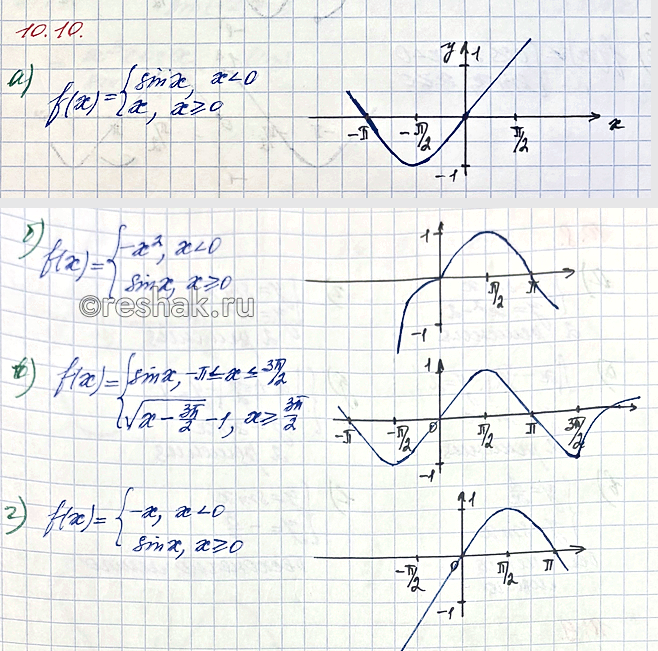 10.10.
а) f(x) = { sinx, x<0
x, x≥0
y 1
-π -π/2 π/2 x
-1
б) f(x) = { -x², x<0
sinx, x≥0
1
π/2 π
-1
©reshak.ru
в) f(x) = { sinx, -π≤x≤3π/2
√(x-3π/2) -1, x≥3π/2
1
-π -π/2 0 π/2 π 3π/2
-1
г) f(x) = { -x, x<0
sinx, x≥0
1
-π/2 0 π/2 π
-1